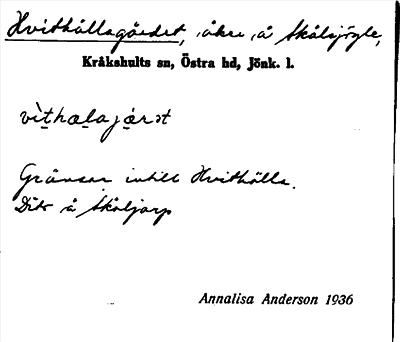 Hvithällagärdet, åker å Skälsjögle,
Kråkshults sn, Östra hd, Jönk. l.
vìthælajæ̀rət
Gränsar intill Hvithälla.
Dito å Skäljarp
Annalisa Anderson 1936